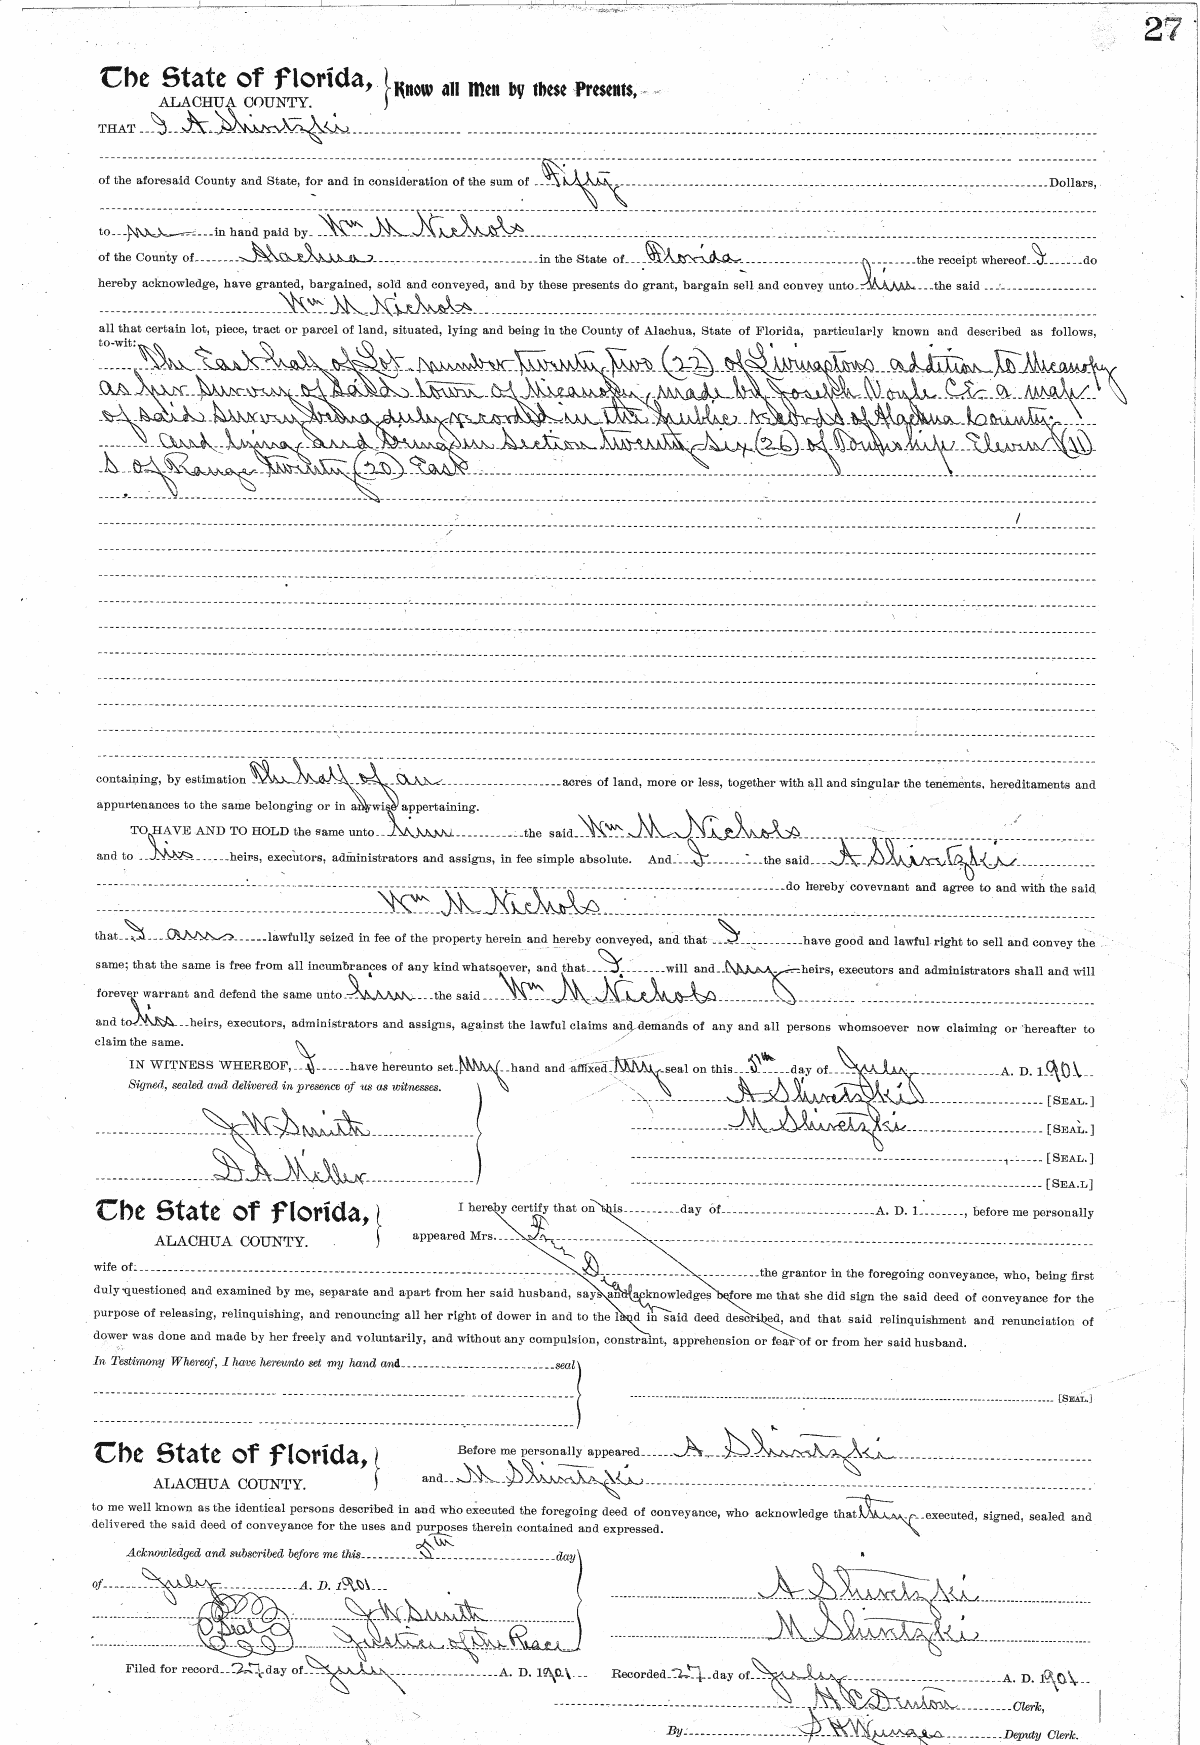 27
The State of Florida, Know all Men by these Presents,
ALACHUA COUNTY.
THAT I A Shiretzki
of the aforesaid County and State, for and in consideration of the sum of Fifty Dollars,
to me in hand paid by Wm M Nichols
of the County of Alachua in the State of Florida the receipt whereof I do
hereby acknowledge, have granted, bargained, sold and conveyed, and by these presents do grant, bargain sell and convey unto him the said
Wm M Nichols
all that certain lot, piece, tract or parcel of land, situated, lying and being in the County of Alachua, State of Florida, particularly known and described as follows,
to-wit: The East half of Lot number twenty two (22) of Livingstons addition to Micanopy
as per Survey of said town of Micanopy, made by Joseph Voyle C.E. a map
of said Survey being duly recorded in the public records of Alachua County.
and lying and being in Section twenty Six (26) of Township Eleven (11)
S of Range twenty (20) East
containing, by estimation The half of an acres of land, more or less, together with all and singular the tenements, hereditaments and
appurtenances to the same belonging or in anywise appertaining.
TO HAVE AND TO HOLD the same unto him the said Wm M Nichols
and to his heirs, executors, administrators and assigns, in fee simple absolute. And I the said A Shiretzki
do hereby covevnant and agree to and with the said
Wm M Nichols
that I am lawfully seized in fee of the property herein and hereby conveyed, and that I have good and lawful right to sell and convey the
same; that the same is free from all incumbrances of any kind whatsoever, and that I will and my heirs, executors and administrators shall and will
forever warrant and defend the same unto him the said Wm M Nichols
and to his heirs, executors, administrators and assigns, against the lawful claims and demands of any and all persons whomsoever now claiming or hereafter to
claim the same.
IN WITNESS WHEREOF, I have hereunto set my hand and affixed my seal on this 5th day of July A. D. 1901
Signed, sealed and delivered in presence of us as witnesses.
A Shiretzki [SEAL.]
J W Smith M Shiretzki [SEAL.]
[SEAL.]
D A Miller [SEA.L]
The State of Florida, I hereby certify that on this day of A. D. 1 , before me personally
ALACHUA COUNTY. appeared Mrs.
wife of the grantor in the foregoing conveyance, who, being first
duly questioned and examined by me, separate and apart from her said husband, says and acknowledges before me that she did sign the said deed of conveyance for the
purpose of releasing, relinquishing, and renouncing all her right of dower in and to the land in said deed described, and that said relinquishment and renunciation of
dower was done and made by her freely and voluntarily, and without any compulsion, constraint, apprehension or fear of or from her said husband.
In Testimony Whereof, I have hereunto set my hand and seal
[SEAL.]
The State of Florida, Before me personally appeared A Shiretzki
ALACHUA COUNTY. and M Shiretzki
to me well known as the identical persons described in and who executed the foregoing deed of conveyance, who acknowledge that they executed, signed, sealed and
delivered the said deed of conveyance for the uses and purposes therein contained and expressed.
Acknowledged and subscribed before me this 5th day
of July A. D. 1901 A Shiretzki
J W Smith
Seal Justice of the Peace M Shiretzki
Filed for record 27 day of July A. D. 1901 Recorded 27 day of July A. D. 1901
H C Denton Clerk,
By S H Wienges Deputy Clerk.